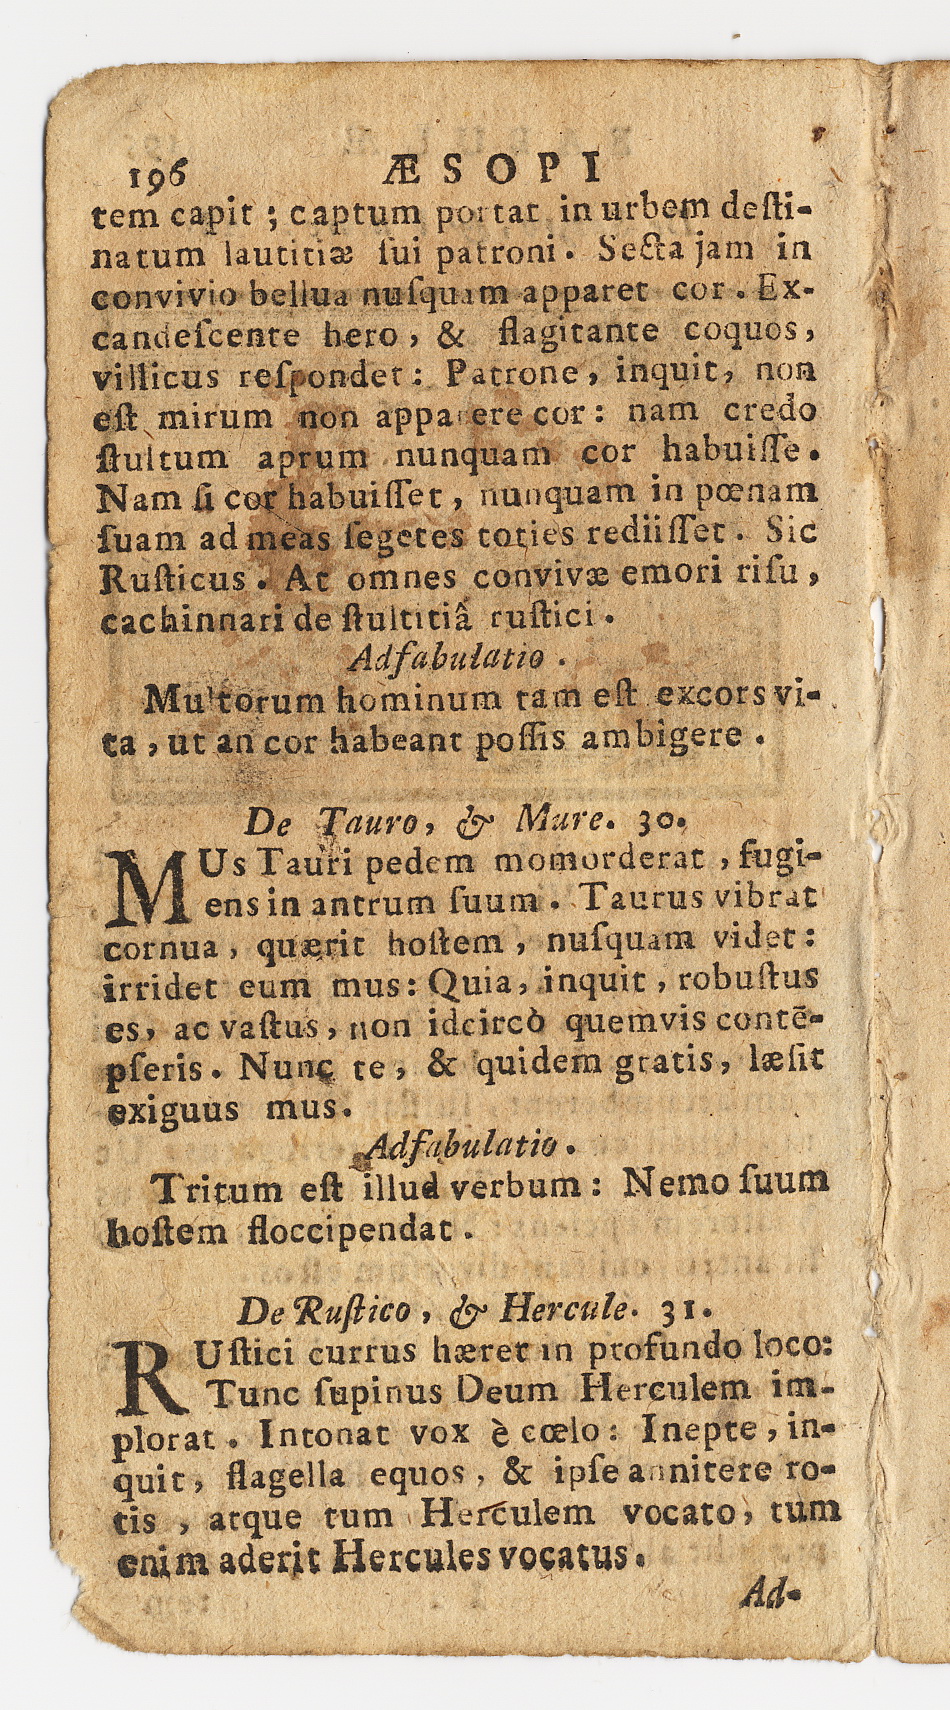 196 ÆSOPI
tem capit ; captum portat in urbem deſti-
natum lautitiæ ſui patroni. Secta jam in
convivio bellua nuſquam apparet cor. Ex-
candeſcente hero, & flagitante coquos,
villicus reſpondet: Patrone, inquit, non
eſt mirum non apparere cor: nam credo
ſtultum aprum nunquam cor habuiſſe.
Nam ſi cor habuiſſet, nunquam in pœnam
ſuam ad meas ſegetes toties rediiſſet. Sic
Ruſticus. At omnes convivæ emori riſu,
cachinnari de ſtultitiâ ruſtici.
Adfabulatio.
Multorum hominum tam eſt excors vi-
ta, ut an cor habeant poſſis ambigere.
De Tauro, & Mure. 30.
MUs Tauri pedem momorderat, fugi-
ens in antrum ſuum. Taurus vibrat
cornua, quærit hoſtem, nuſquam videt:
irridet eum mus: Quia, inquit, robuſtus
es, ac vaſtus, non idcircò quemvis contē-
pſeris. Nunc te, & quidem gratis, læſit
exiguus mus.
Adfabulatio.
Tritum eſt illud verbum: Nemo ſuum
hoſtem floccipendat.
De Ruſtico, & Hercule. 31.
RUſtici currus hæret in profundo loco:
Tunc ſupinus Deum Herculem im-
plorat. Intonat vox è cœlo: Inepte, in-
quit, flagella equos, & ipſe annitere ro-
tis, atque tum Herculem vocato, tum
enim aderit Hercules vocatus.
Ad-